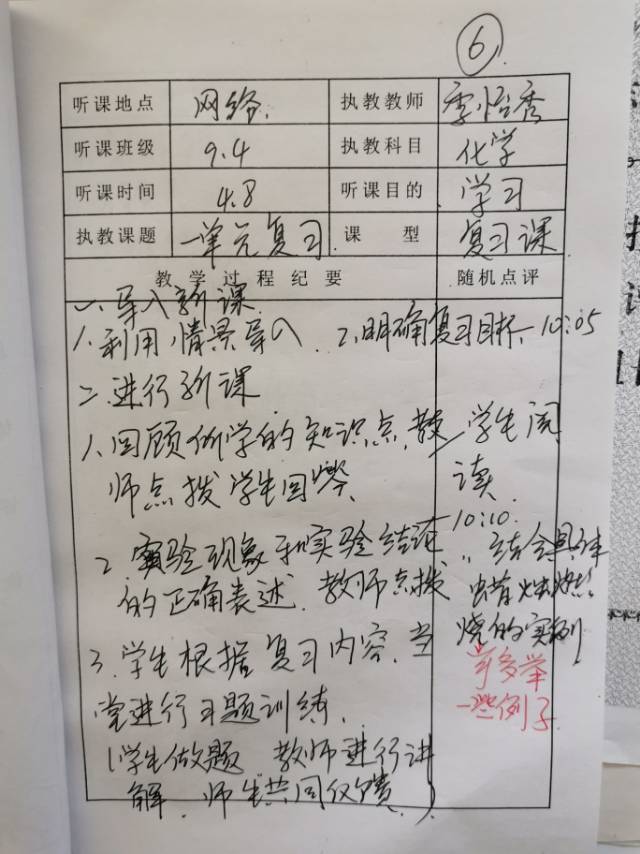 ⑥
听课地点 网络. 执教教师 李怡秀
听课班级 9.4 执教科目 化学
听课时间 4.8 听课目的 学习
执教课题 一单元复习 课 型 复习课
教 学 过 程 纪 要 随机点评
一、导入新课
1.利用情景导入 2.明确复习目标 10:05
二.进行新课
1.回顾所学的知识点,教
师点拨学生回答
学生阅
读
10:10
2 实验现象和实验结论
的正确表述.教师点拨
结合具体
蜡烛燃
烧的实例
3.学生根据复习内容.当
堂进行习题训练.
可多举
一些例子
(学生做题 教师进行讲
解.师生共同反馈.)